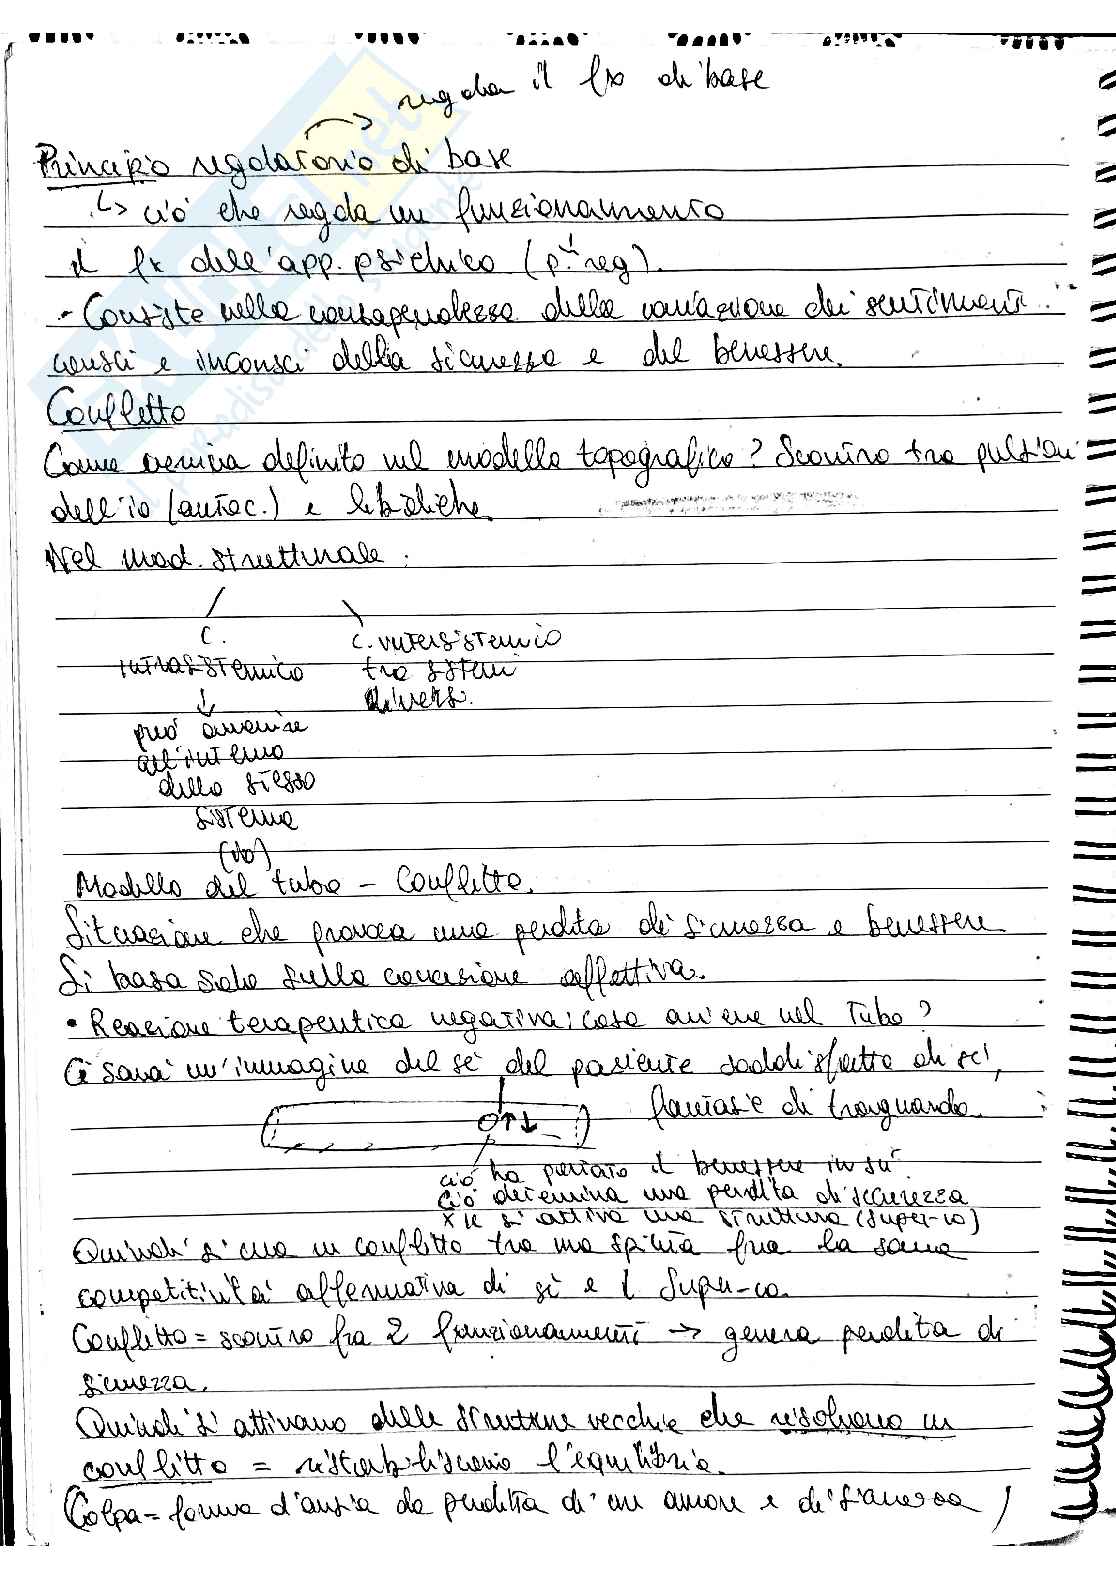 regola il fx di base
Principio regolatorio di base
↳ ciò che regola un funzionamento
il fx dell'app. psichico (p. reg).
- Consiste nella consapevolezza della variazione dei sentimenti
consci e inconsci della sicurezza e del benessere.
Conflitto
Come veniva definito nel modello topografico? Scontro tra pulsioni
dell'io (autoc.) e libidiche.
Nel mod. strutturale:
C. C. intersistemico
intrasistemico tra sistemi
↓ diversi.
può avvenire
all'interno
dello stesso
sistema
Modello del tubo - Conflitto.
Situazione che provoca una perdita di sicurezza e benessere
Si basa solo sulla concezione affettiva.
• Reazione terapeutica negativa: cosa avviene nel Tubo?
Ci sarà un'immagine del sé del paziente soddisfatto di sé,
fantasie di traguardo.
ciò ha portato il benessere in su
Ciò determina una perdita di sicurezza
x k si attiva una struttura (super-io)
Quindi si crea un conflitto tra una spinta fra la sana
competitività affermativa di sé e il Super-io.
Conflitto = scontro fra 2 funzionamenti → genera perdita di
sicurezza.
Quindi si attivano delle strutture vecchie che risolvono un
conflitto = ristabiliscono l'equilibrio.
Colpa = forma d'ansia da perdita di un amore e di sicurezza /